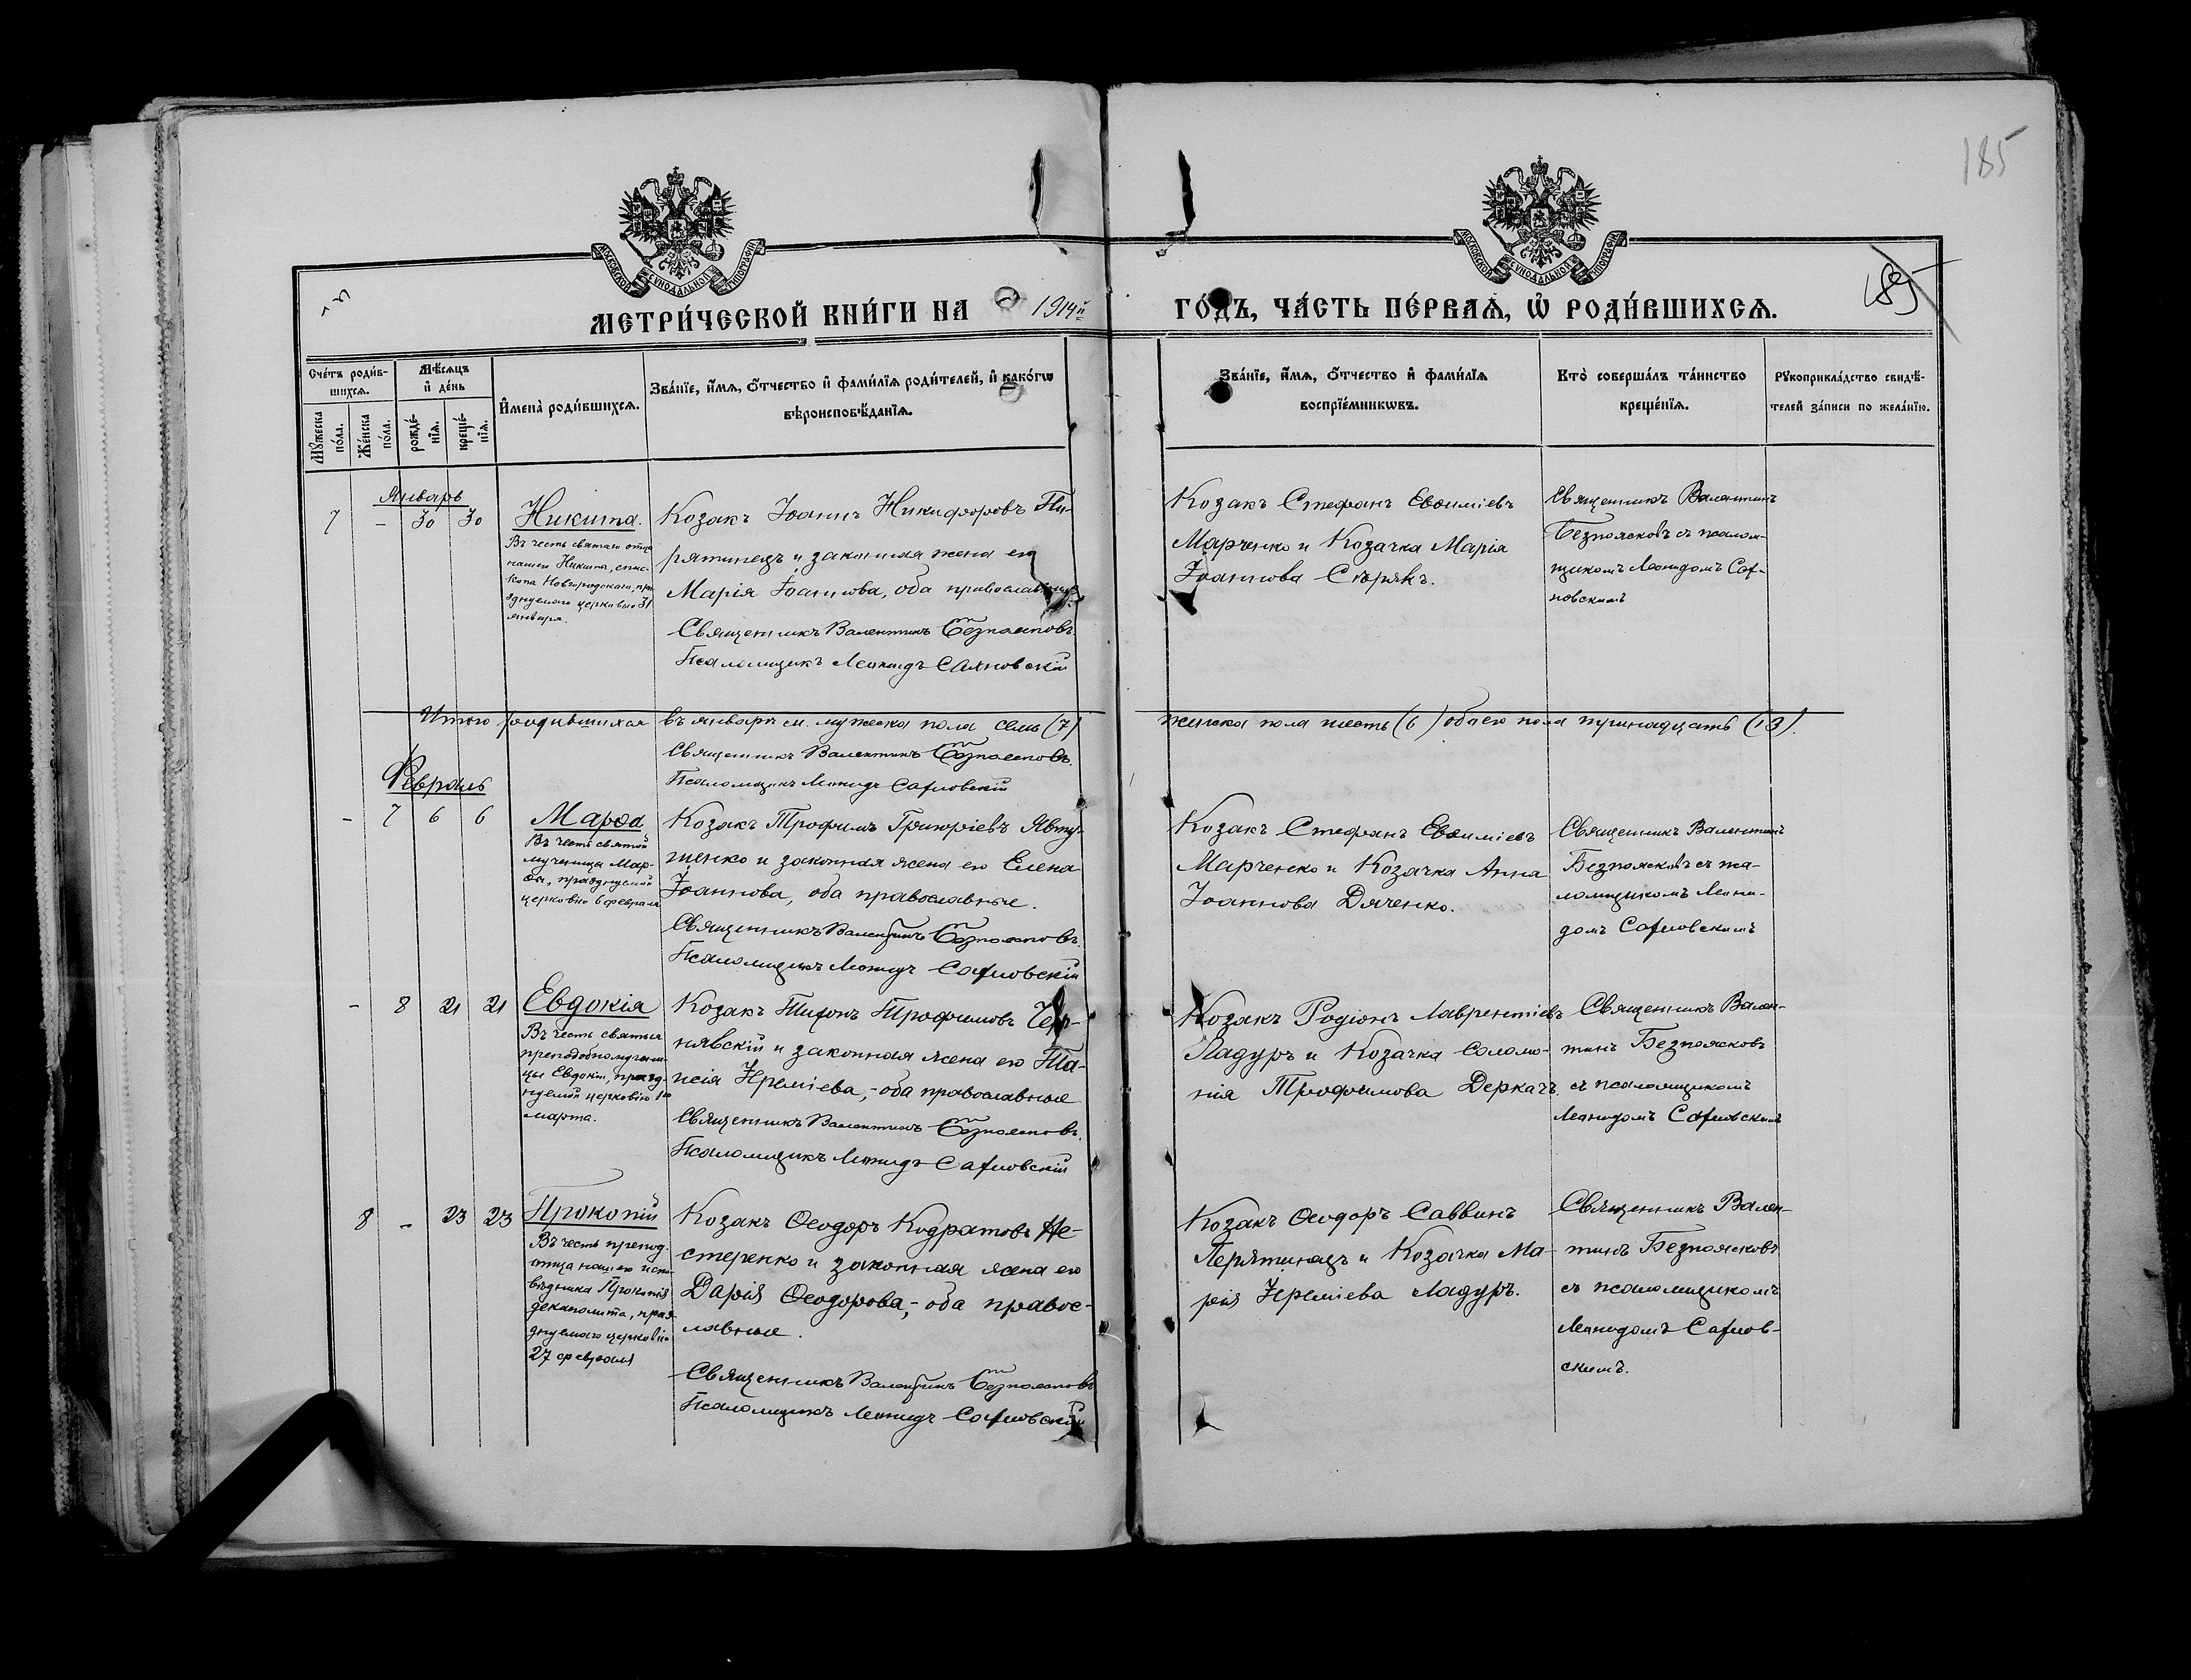 185
185
МОСКОВСКОЙ СѴНОДАЛЬНОЙ ТИПОГРАФІИ
МОСКОВСКОЙ СѴНОДАЛЬНОЙ ТИПОГРАФІИ
МЕТРИ́ЧЕСКОЙ КНИ́ГИ НА 1914й
ГО́ДЪ, ЧА́СТЬ ПЕ́РВАѦ, Ѡ҆ РОДИ́ВШИХСѦ.
Сче́тъ роди́в-
шихсѧ.
Мꙋ́жеска по́ла.
Же́нска по́ла.
Мѣ́сѧцъ
и҆ де́нь
рожде́-
нїѧ.
креще́-
нїѧ.
И҆мена̀ роди́вшихсѧ.
Зва́нїе, и҆́мѧ, ѻ҆́тчество и҆ фами́лїѧ роди́телей, и҆ како́гѡ
вѣроисповѣ́данїѧ.
Зва́нїе, и҆́мѧ, ѻ҆́тчество и҆ фами́лїѧ
воспрїе́мникѡвъ.
Кто̀ соверша́лъ та́инство
креще́нїѧ.
Рꙋкоприкла́дство свидѣ́-
телей за́писи по жела́нїю.
Январь
7 - 30 30
Никита.
Въ честь святаго отца
нашего Никиты, епис-
копа Новгородскаго, пра-
зднуемаго церковью 31
января.
Козакъ Іоаннъ Никифоровъ Пи-
рятинецъ и законная жена его
Марія Іоаннова, оба православные.
Священникъ Валентинъ Безпоясковъ.
Псаломщикъ Леонидъ Сахновскій
Козакъ Стефанъ Евѳиміевъ
Марченко и Козачка Марія
Іоаннова Сѣрякъ.
Священникъ Валентинъ
Безпоясковъ съ псалом-
щикомъ Леонидомъ Сах-
новскимъ
Итого родившихся въ январѣ м. мужеска пола семь (7) женска пола шесть (6) обоего пола тринадцать (13).
Священникъ Валентинъ Безпоясковъ.
Псаломщикъ Леонидъ Сахновскій
Февраль
- 7 6 6
Марѳа
Въ честь святой
мученицы Мар-
ѳы, празднуемой
церковію 6 февраля
Козакъ Трофимъ Григоріевъ Явту-
шенко и законная жена его Елена
Іоаннова, оба православные.
Священникъ Валентинъ Безпоясковъ.
Псаломщикъ Леонидъ Сахновскій
Козакъ Стефанъ Евѳиміевъ
Марченко и Козачка Анна
Іоаннова Дяченко.
Священникъ Валентинъ
Безпоясковъ съ пса-
ломщикомъ Леони-
домъ Сахновскимъ
- 8 21 21
Евдокія
Въ честь святыя
преподобномучени-
цы Евдокіи, празд-
нуемой церковію 1го
марта.
Козакъ Тихонъ Трофимовъ
нявскій и законная жена его Та-
исія Іереміева,- оба православные
Священникъ Валентинъ Безпоясковъ.
Псаломщикъ Леонидъ Сахновскій
Козакъ Родіонъ Лаврентіевъ
Ладуръ и Козачка Соломо-
нія Трофимова Деркачъ.
Священникъ Вален-
тинъ Безпоясковъ
съ псаломщикомъ
Леонидомъ Сахновскимъ
8 - 23 23
Прокопій
Въ честь препод.
отца нашего испо-
вѣдника Прокопія
декаполита, праз-
днуемаго церковію
27 февраля
Козакъ Ѳеодоръ Кодратовъ Не-
стеренко и законная жена его
Дарія Ѳеодорова,- оба правос-
лавные.
Священникъ Валентинъ Безпоясковъ
Псаломщикъ Леонидъ Сахновскій
Козакъ Ѳеодоръ Саввинъ
Перятинецъ и Козачка Ма-
рія Іереміева Ладуръ.
Священникъ Вален-
тинъ Безпоясковъ
съ псаломщикомъ
Леонидомъ Сахнов-
скимъ.